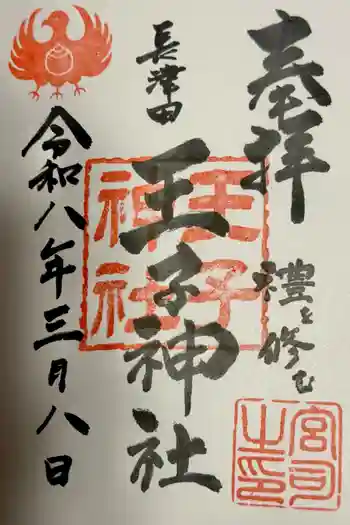 奉拝
禮を修む
長津田
王子神社
令和八年三月八日
王子神社
宮司之印